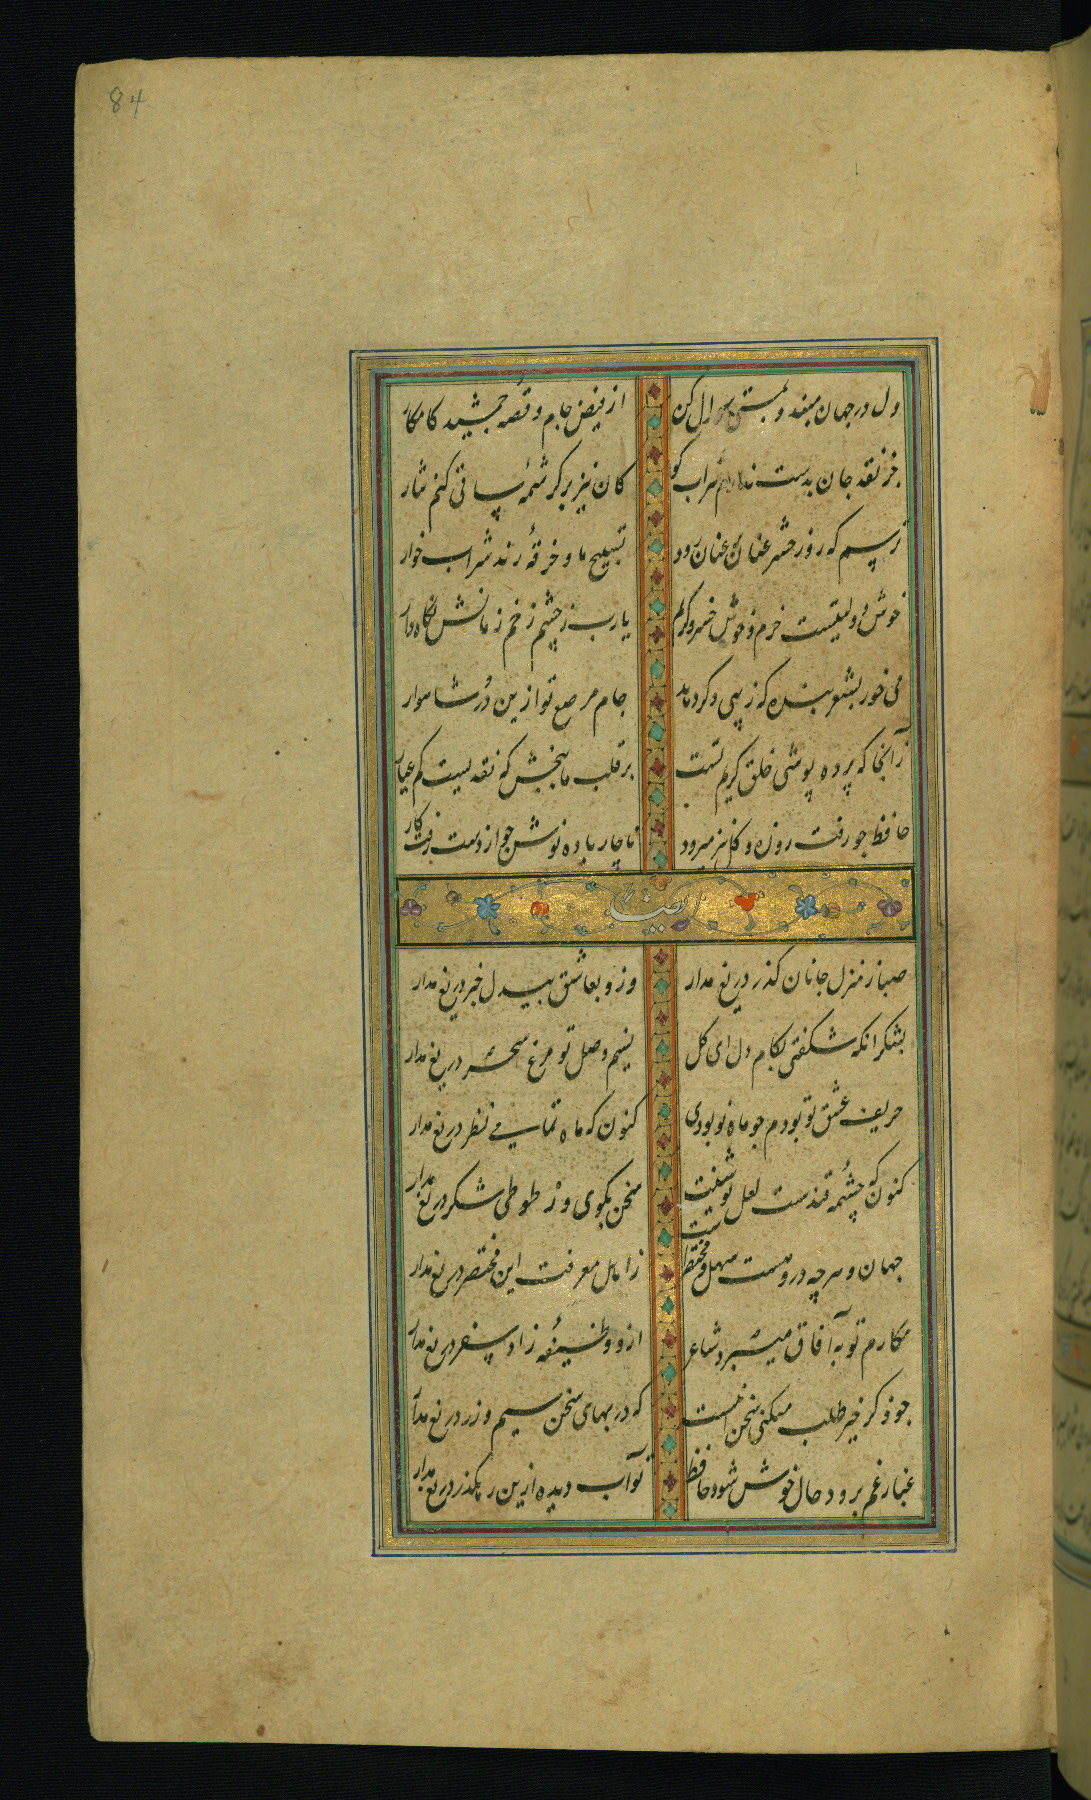 84
دل در جهان مبند و بمستی سوال کن از فیض جام و قصه جمشید کامکار
جز نقد جان بدست ندارم شراب کو کان نیز بر کرشمهٔ ساقی کنم نثار
ترسم که روز حشر عنان بر عنان رود تسبیح ما و خرقهٔ رند شراب خوار
خوش دولتیست خرم و خوش خسرو کریم یارب ز چشم زخم زمانش نگاه دار
می خور بشعر بنده که زیبی دگر دهد جام مرصع تو ازین در شاهوار
زآنجا که پرده پوشی خلق کریم تست بر قلب ما ببخش که نقدیست کم عیار
حافظ چو رفت روزه و گل نیز میرود ناچار باده نوش چو از دست رفت کار
صبا ز منزل جانان گذر دریغ مدار وزو بعاشق بیدل خبر دریغ مدار
بشکر آنکه شکفتی بکام دل ای گل نسیم وصل تو مرغ سحر دریغ مدار
حریف عشق تو بودم چو ماه نو بودی کنون که ماه تمامی نظر دریغ مدار
کنون که چشمهٔ قندست لعل نوشینت سخن بگوی و ز طوطی شکر دریغ مدار
جهان و هرچه درو هست سهل و مختصرست ز اهل معرفت این مختصر دریغ مدار
مکارم تو به آفاق میبرد شاعر ازو وظیفه زاد سفر دریغ مدار
چو ذکر خیر طلب میکنی سخن اینست که در بهای سخن سیم و زر دریغ مدار
غبار غم برود حال خوش شود حافظ تو آب دیده ازین رهگذر دریغ مدار